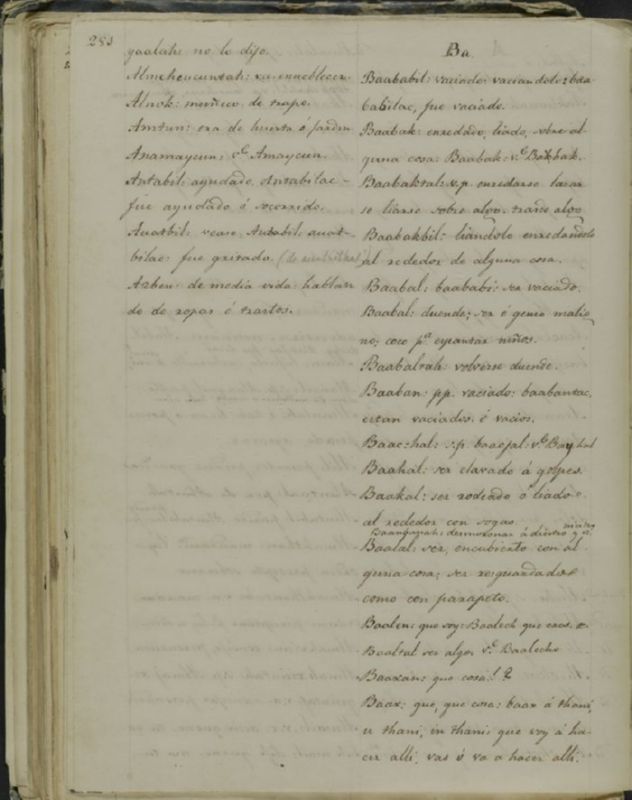 283
yaalah: no lo dijo.
Almehencuntah: va: ennoblecer.
Alnok: muñeco de trapo.
Amtun: era de huerta ó jardin
Anamaycun: vᵉ Amaycun.
Antabil: ayudado. Antabilac-
fue ayudado ó socorrido.
Auatbil: vease, Autabil: auat-
bilac: fue gritado. (de
Azben: de media vida hablan
do de ropas ó trastos.
Ba
Baababil: vaciado: vaciandole: baa
babilac, fue vaciado.
Baabak: enredado, liado, sobre al-
guna cosa: Baabak: vᵉ Bakbak.
Baabaktal: v.p. enredarse lazar
se liarse sobre algo. traido algo
Baabakbil: liandolo enredandolo
al rededor de alguna cosa.
Baabal: baababi: ser vaciado.
Baabal: duende; ser ó genio malig
no; coco pᵃ espantar niños.
Baabalhah: volverse duende.
Baaban: pp. vaciado: baabantac,
estan vaciados, ó vacios.
Baac-hal: s.p. baacjal: vᵉ Bay hal
Baahal: ser clavado á golpes.
Baakal: ser rodeado ó liado
al rededor con sogas.
desmoronar á
Baalal: ser, encubierto con al
guna cosa; ser resguardado
como con parapeto.
Baalen: que soy: Baalech que eres. &
Baaltal ser algo. vᵉ Baalech
Baaxan: que cosa! ?
Baax: que, que cosa: baax á thani,
u thani, in thani: que voy á ha-
cer alli, vas ó va a hacer alli.